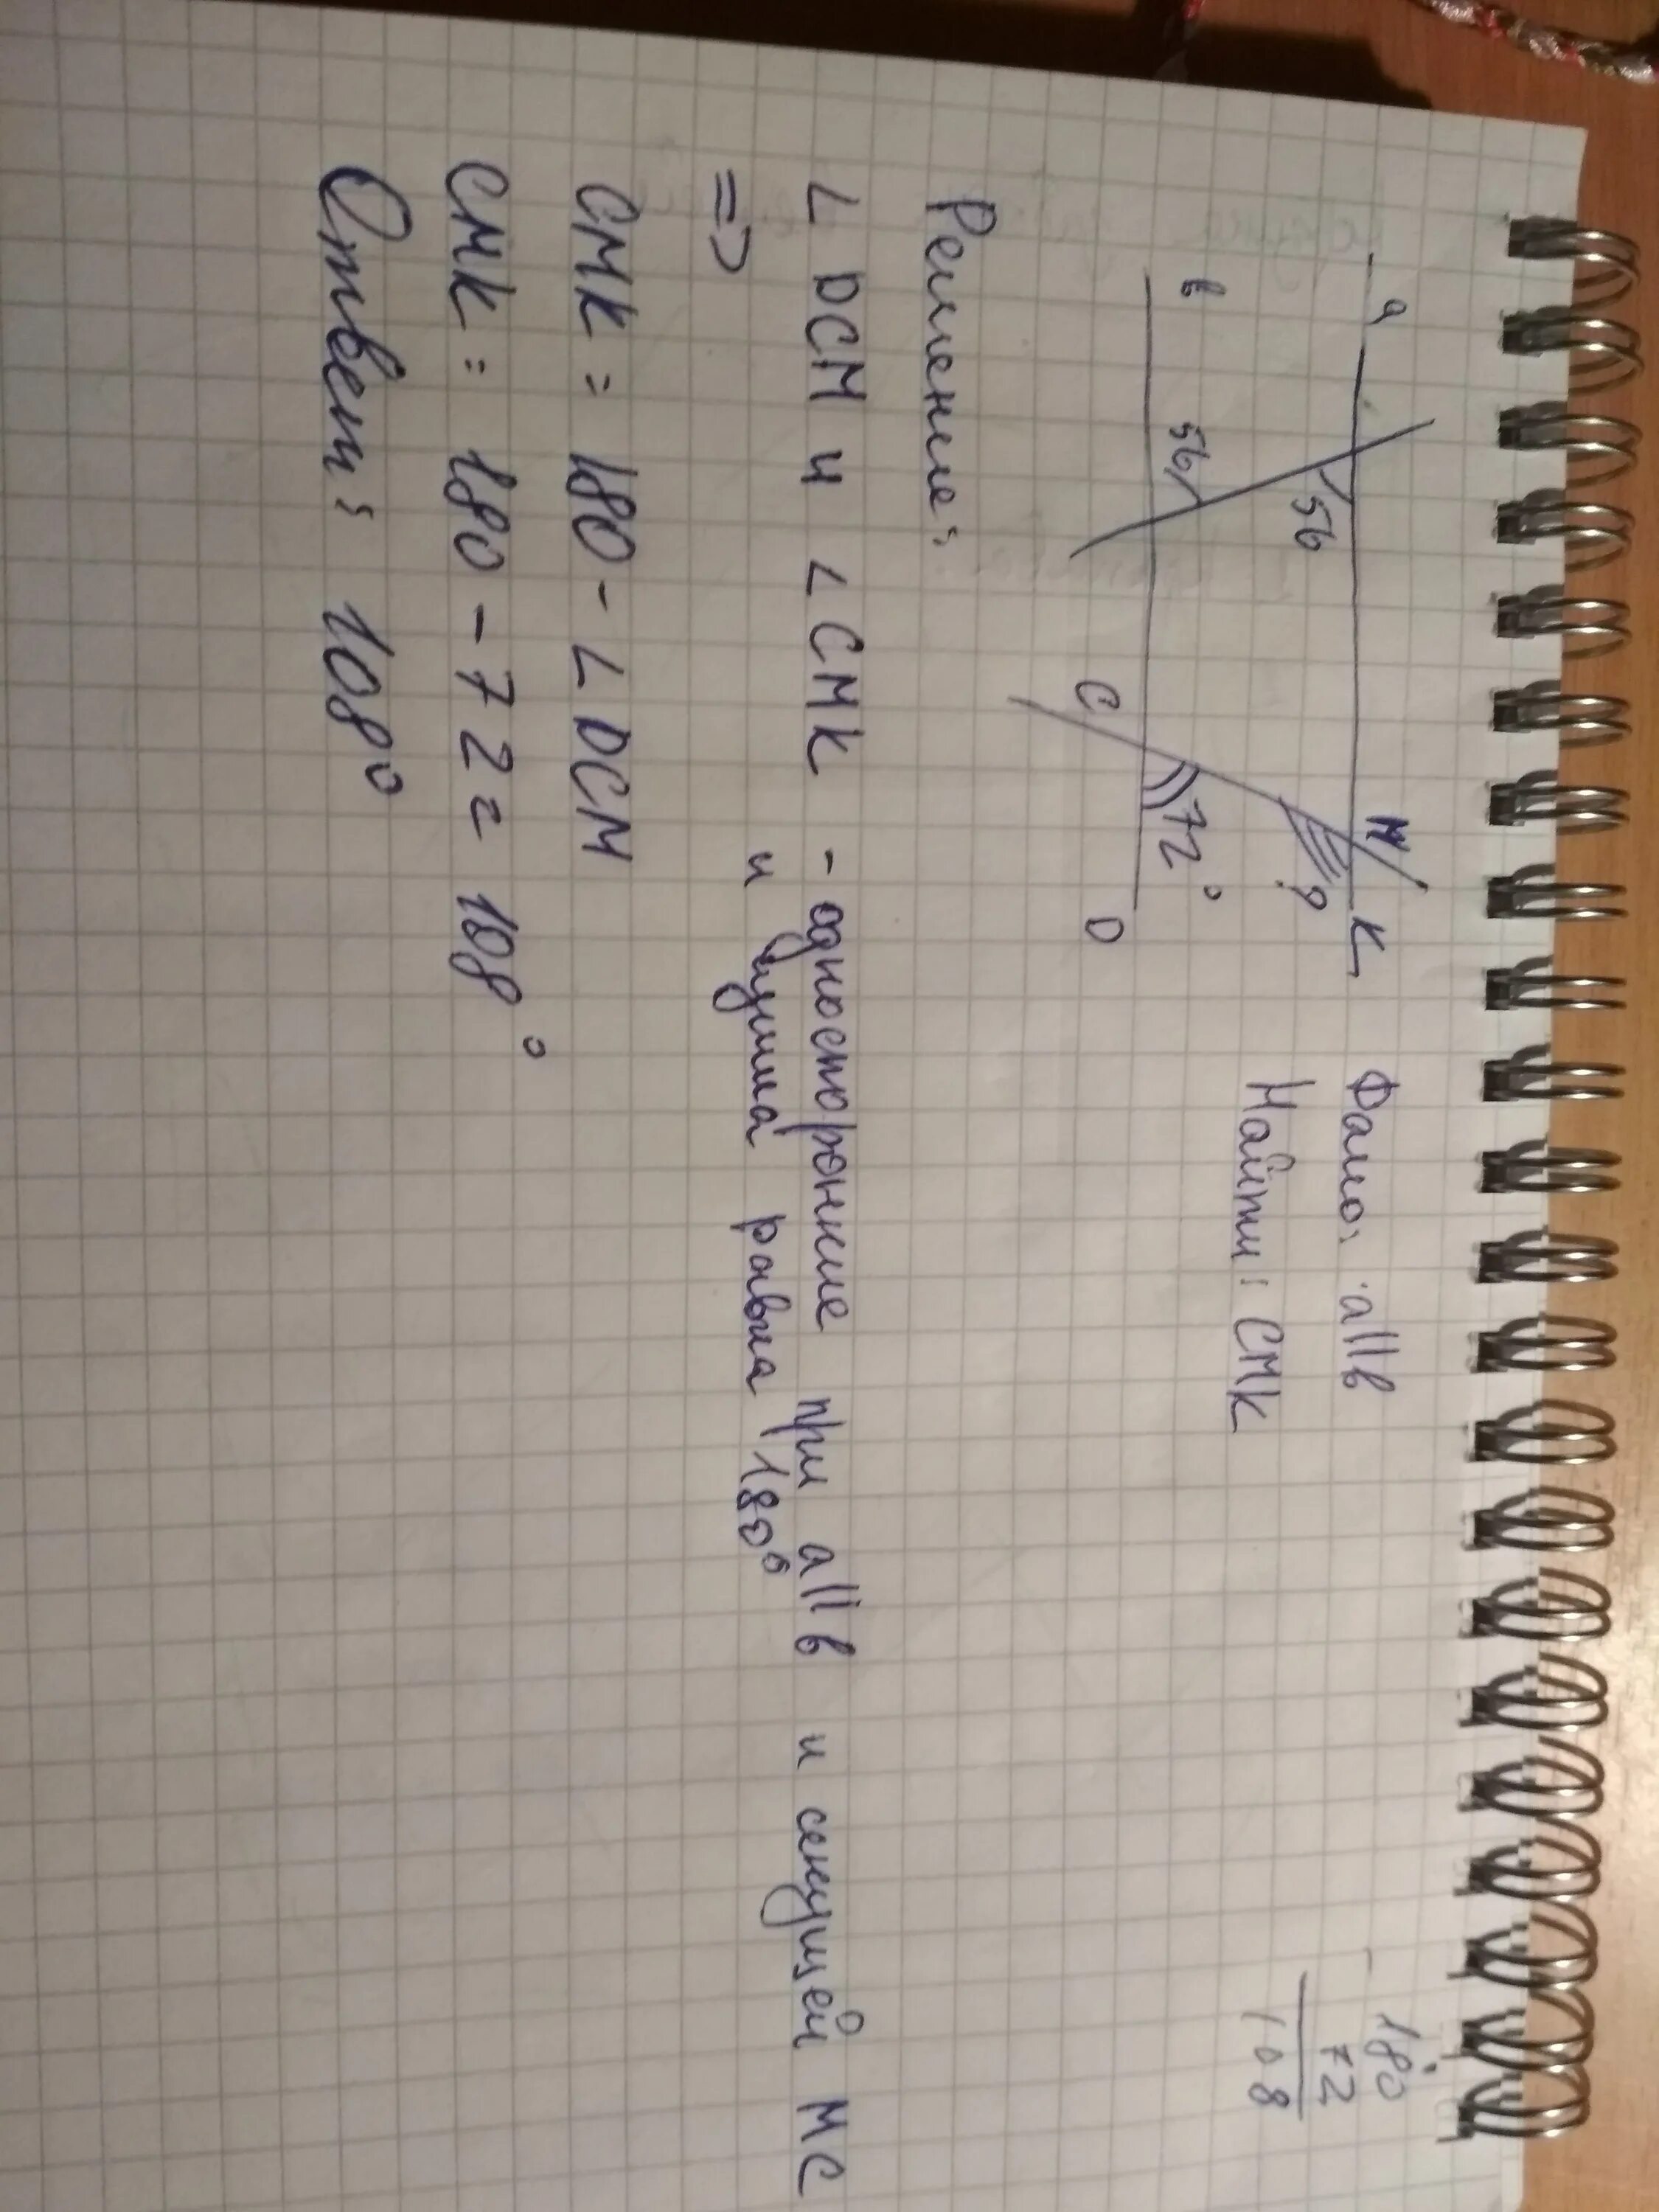 a
M
K
56
?
в
56
72°
C
D
Дано: a||в
Найти: CMK
180
- 72
108
Решение:
∠ DCM и ∠ CMK - односторонние при a||в и секущей MC
и сумма равна 180°
=>
CMK = 180 - ∠ DCM
CMK = 180 - 72 = 108°
Ответ: 108°